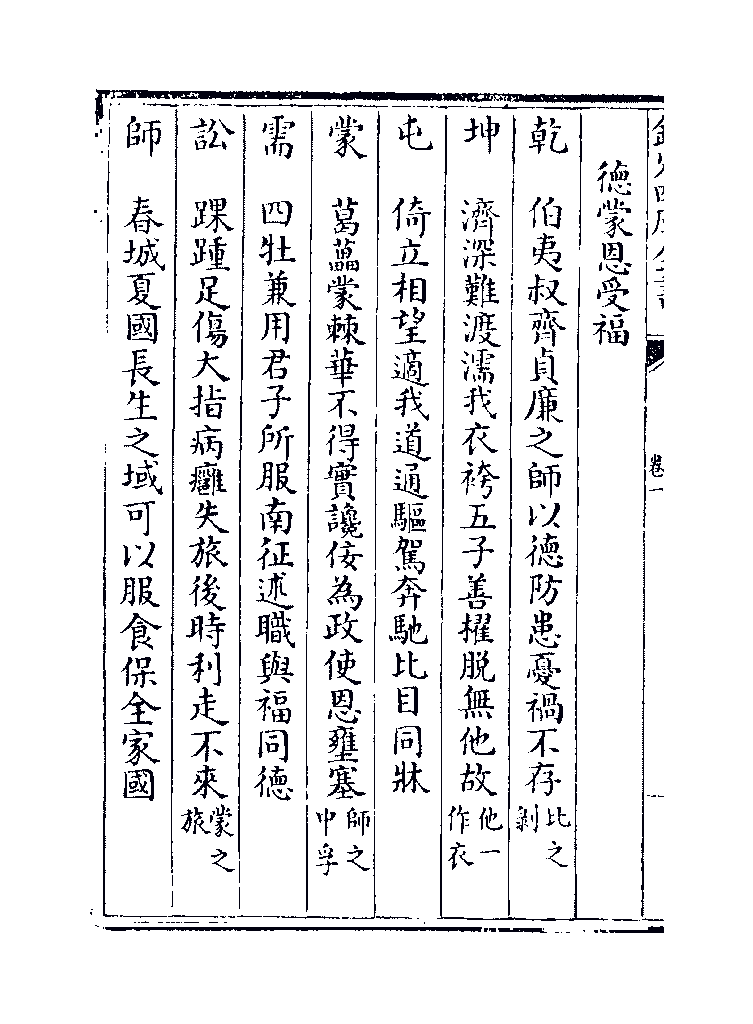 德蒙恩受福
乾　伯夷叔齊貞廉之師以德防患憂禍不存比之剝
坤　濟深難渡濡我衣袴五子善擢脱無他故他一作衣
屯　倚立相望適我道通驅駕奔馳比目同牀
蒙　葛藟蒙棘華不得實讒佞為政使恩壅塞師之中孚
需　四牡兼用君子所服南征述職與福同德
訟　踝踵足傷大指病癰失旅後時利走不來蒙之旅
師　春城夏國長生之域可以服食保全家國
卷一